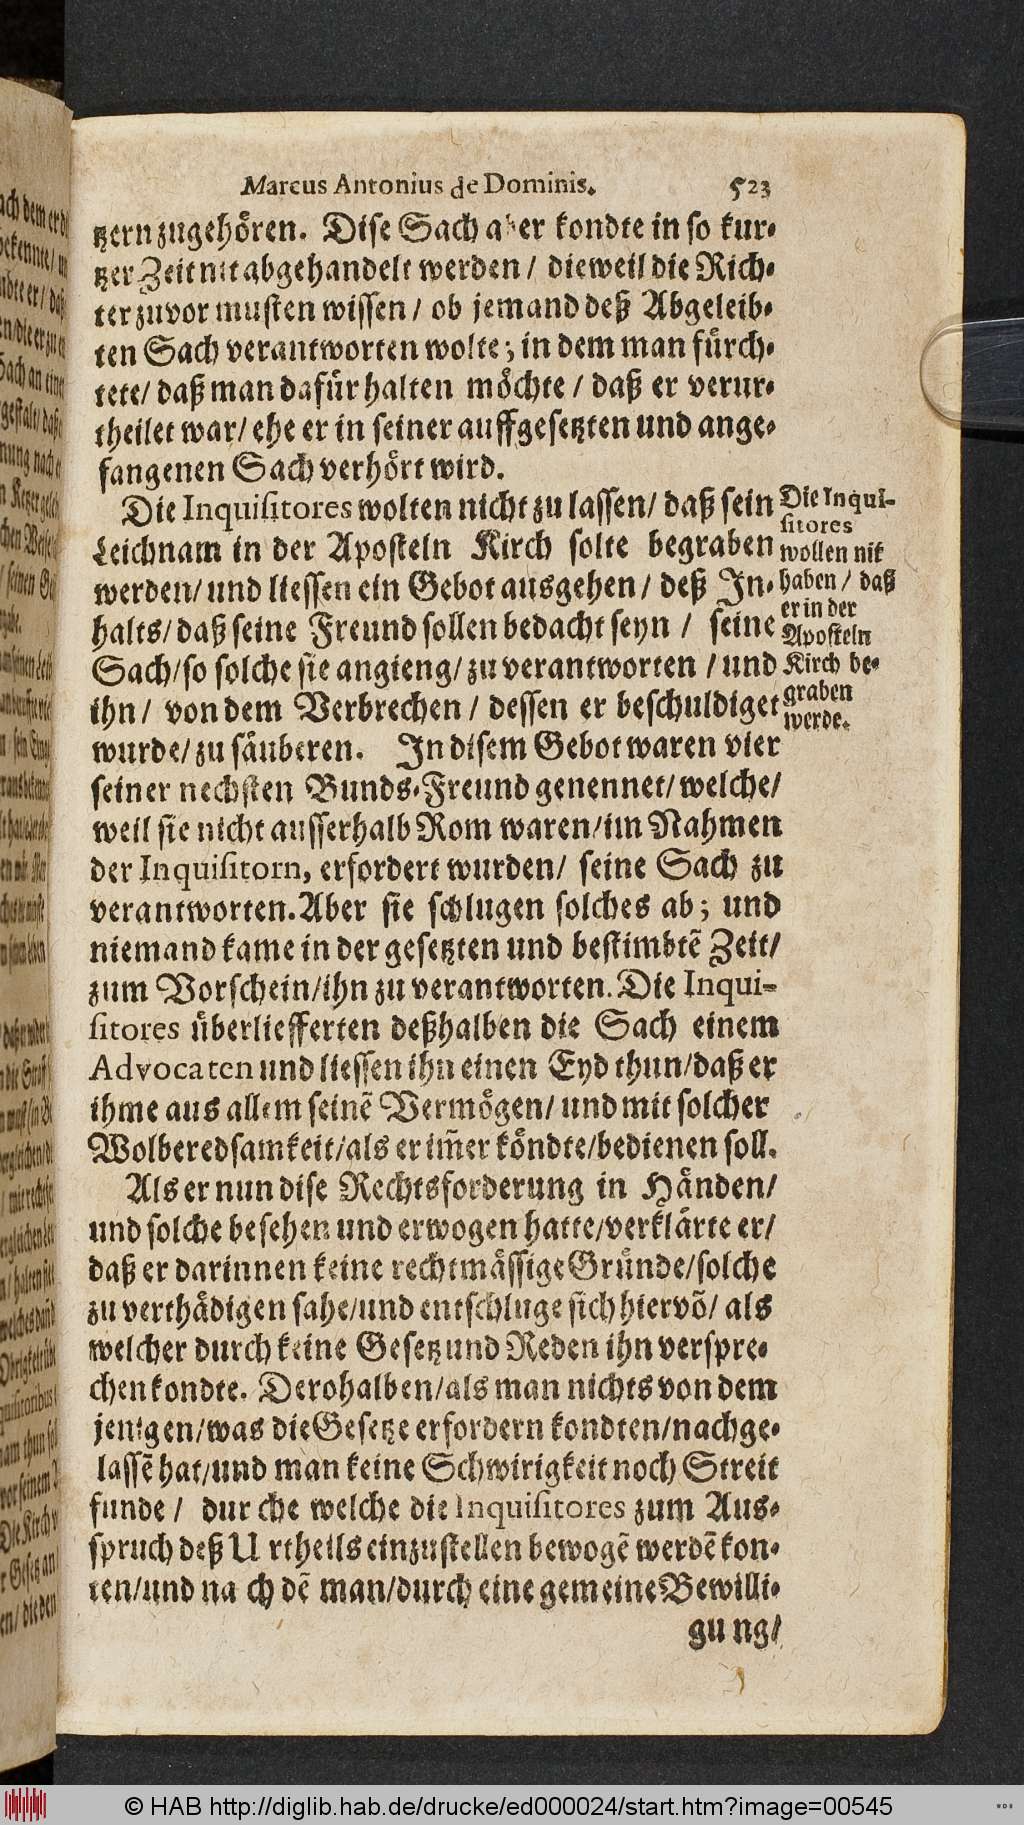 Marcus Antonius de Dominis. 523
tzern zugehören. Dise Sach aber kondte in so kur-
tzer Zeit nit abgehandelt werden / dieweil die Rich-
ter zuvor musten wissen / ob jemand deß Abgeleib-
ten Sach verantworten wolte; in dem man fürch-
tete / daß man dafür halten möchte / daß er verur-
theilet war / ehe er in seiner auffgesetzten und ange-
fangenen Sach verhört wird.
Die Inquisitores wolten nicht zu lassen / daß sein
Leichnam in der Aposteln Kirch solte begraben
werden / und liessen ein Gebot ausgehen / deß In-
halts / daß seine Freund sollen bedacht seyn / seine
Sach / so solche sie angieng / zu verantworten / und
ihn / von dem Verbrechen / dessen er beschuldiget
wurde / zu säuberen. In disem Gebot waren vier
seiner nechsten Bunds-Freund genennet / welche /
weil sie nicht ausserhalb Rom waren / im Nahmen
der Inquisitorn, erfordert wurden / seine Sach zu
verantworten. Aber sie schlugen solches ab; und
niemand kame in der gesetzten und bestimbtē Zeit /
zum Vorschein / ihn zu verantworten. Die Inqui-
sitores überliefferten deßhalben die Sach einem
Advocaten und liessen ihn einen Eyd thun / daß er
ihme aus allem seinē Vermögen / und mit solcher
Wolberedsamkeit / als er im̄er köndte / bedienen soll.
Als er nun dise Rechtsforderung in Händen /
und solche besehen und erwogen hatte / verklärte er /
daß er darinnen keine rechtmässige Gründe / solche
zu verthädigen sahe / und entschluge sich hiervō / als
welcher durch keine Gesetz und Reden ihn verspre-
chen kondte. Derohalben / als man nichts von dem
jenigen / was die Gesetze erfordern kondten / nachge-
lassē hat / und man keine Schwirigkeit noch Streit
funde / dur che welche die Inquisitores zum Aus-
spruch deß U rtheils einzustellen bewogē werdē kon-
ten / und na ch dē man / durch eine gemeine Bewilli-
gu ng /
Die Inqui-
sitores
wollen nit
haben / daß
er in der
Aposteln
Kirch be-
graben
werde.
© HAB http://diglib.hab.de/drucke/ed000024/start.htm?image=00545